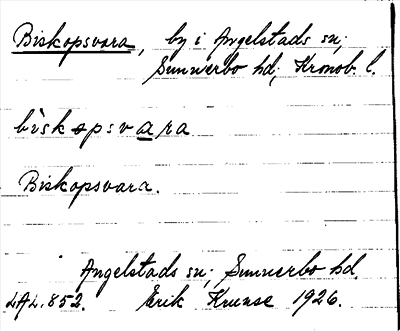 Biskopsvara, by i Angelstads sn;
Sunnerbo hd, Kronob. l.
bìskopsvara
Biskopsvara.
Angelstads sn; Sunnerbo hd.
LAL. 852. Erik Kruuse 1926.